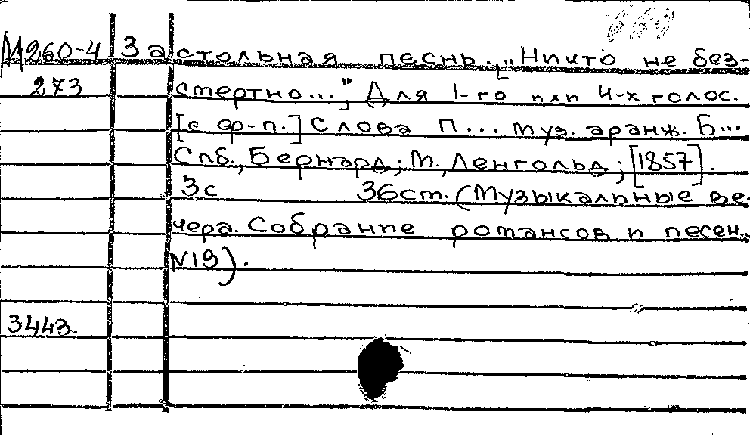 М260-4 Застольная песнь. „[Ничто не без-
273 смертно..."] Для 1-го или 4-х голос.
[с ф-п.] Слова П... муз. аранж. Б...
Спб., Бернард; М., Ленгольд; [1857].
3с 36см. (Музыкальные ве-
чера. Собрание романсов и песен.
N19).
3443.